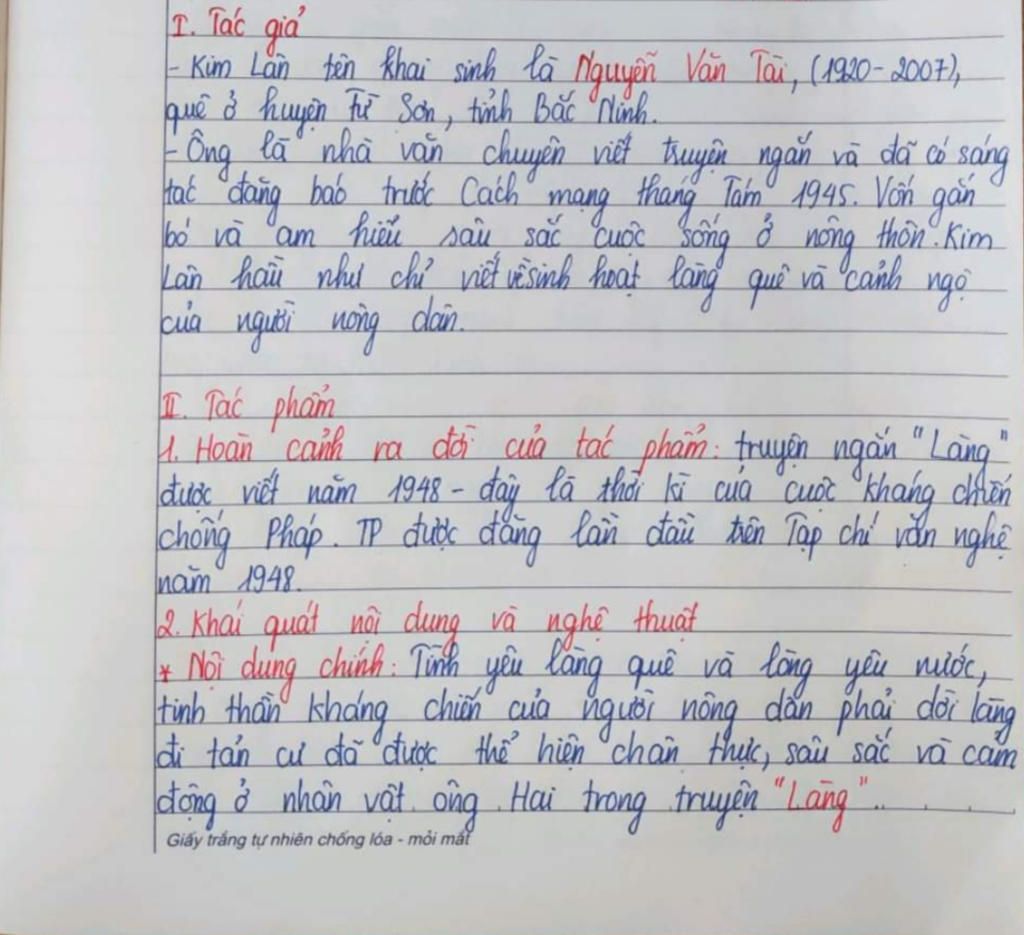 I. Tác giả
- Kim Lân tên khai sinh là Nguyễn Văn Tài, (1920-2007),
quê ở huyện Từ Sơn, tỉnh Bắc Ninh.
- Ông là nhà văn chuyên viết truyện ngắn và đã có sáng
tác đăng báo trước Cách mạng tháng Tám 1945. Vốn gắn
bó và am hiểu sâu sắc cuộc sống ở nông thôn. Kim
Lân hầu như chỉ viết về sinh hoạt làng quê và cảnh ngộ
của người nông dân.
II. Tác phẩm
1. Hoàn cảnh ra đời của tác phẩm: truyện ngắn "Làng"
được viết năm 1948 - đây là thời kì của cuộc kháng chiến
chống Pháp. TP được đăng lần đầu trên Tạp chí văn nghệ
năm 1948.
2. Khái quát nội dung và nghệ thuật
* Nội dung chính: Tình yêu làng quê và lòng yêu nước,
tinh thần kháng chiến của người nông dân phải dời làng
đi tản cư đã được thể hiện chân thực, sâu sắc và cảm
động ở nhân vật ông Hai trong truyện "Làng"..
Giấy trắng tự nhiên chống lóa - mỏi mắt